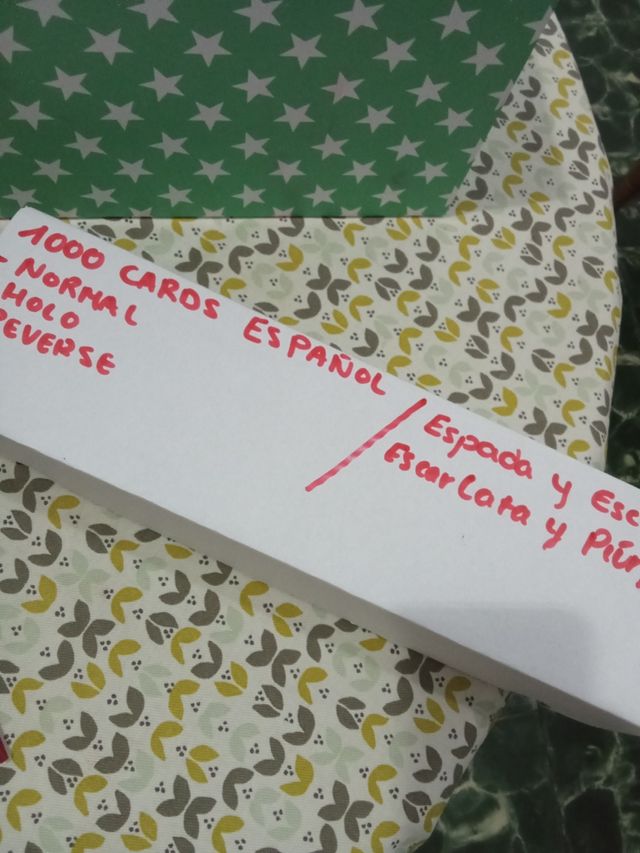 1000 CARDS ESPAÑOL
- NORMAL
HOLO
REVERSE
/ Espada y Esc
Escarlata y Púr